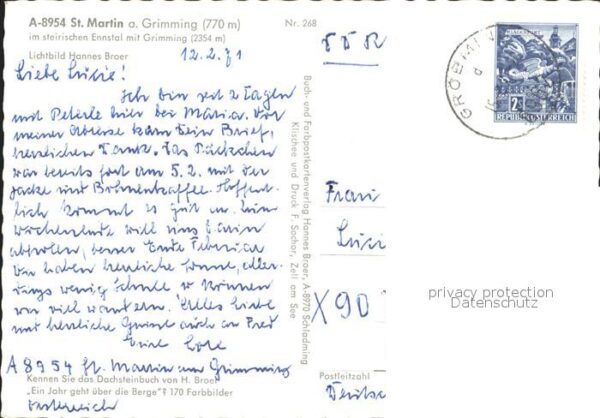 A-8954 St. Martin a. Grimming (770 m)
im steirischen Ennstal mit Grimming (2354 m)
Nr. 268
Lichtbild Hannes Broer
12.2.71
Liebe Lucie!
Ich bin seit 2 Tagen
mit Peterle hier bei Maria. Vor
meiner Abreise kam Dein Brief,
herzlichen Dank. Das Päckchen
war bereits fort am 5.2. mit der
Jacke und Bohnenkaffee. Hoffent-
lich kommt es gut an.
wochenende will uns
abholen, besser Ende Februar
Wir haben herrliche Sonne, aller-
dings wenig Schnee u. können
viel wandern. Alles Liebe
und herzliche Grüsse auch an Fred
Eure
A 8954 St. Martin am Grimming
Kennen Sie das Dachsteinbuch von H. Broer
„Ein Jahr geht über die Berge"? 170 Farbbilder
Österreich
Buch- und Farbpostkartenverlag Hannes Broer, A-8970 Schladming
Klischee und Druck F. Sochor, Zell am See
DDR
Frau
Luci
X 90
Postleitzahl
Deutsc
GRÖBMI
2
REPUBLIK ÖSTERREICH
privacy protection
Datenschutz